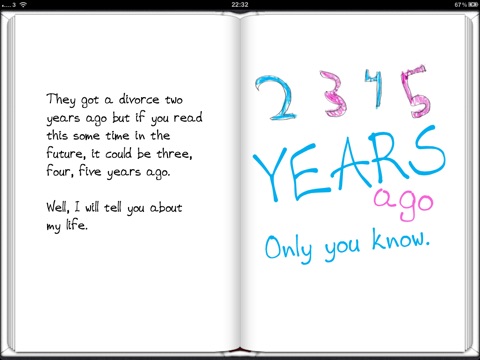 ...3
22:32
67%
They got a divorce two
years ago but if you read
this some time in the
future, it could be three,
four, five years ago.
Well, I will tell you about
my life.
2 3 4 5
YEARS
ago
Only you know.